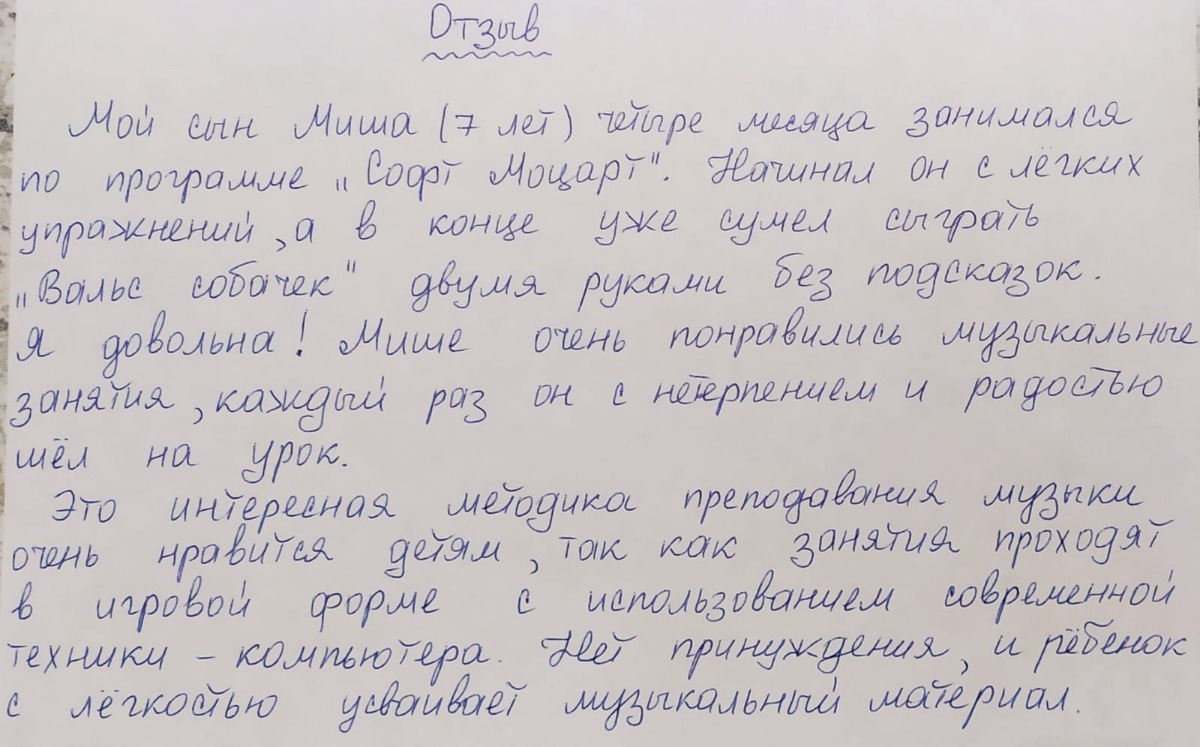 Отзыв
Мой сын Миша (7 лет) четыре месяца занимался
по программе „Софт Моцарт". Начинал он с лёгких
упражнений, а в конце уже сумел сыграть
„Вальс собачек" двумя руками без подсказок.
Я довольна! Мише очень понравились музыкальные
занятия, каждый раз он с нетерпением и радостью
шёл на урок.
Это интересная методика преподавания музыки
очень нравится детям, так как занятия проходят
в игровой форме с использованием современной
техники – компьютера. Нет принуждения, и рёбенок
с лёгкостью усваивает музыкальный материал.